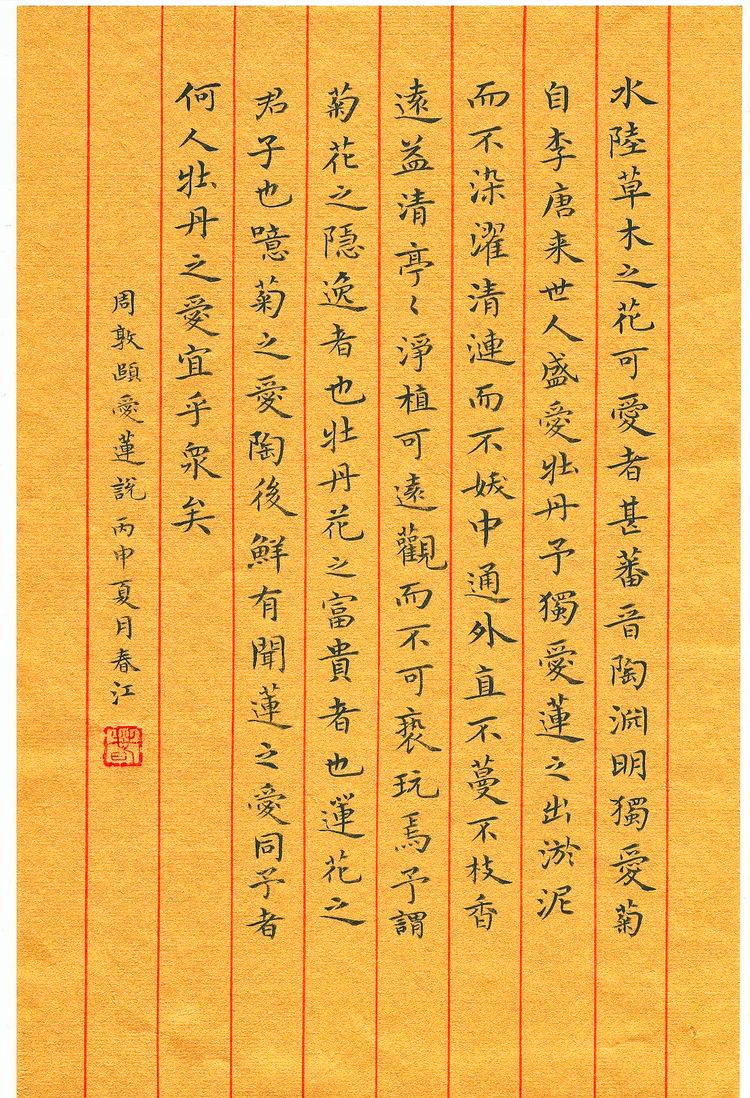 水陸草木之花可愛者甚蕃晉陶淵明獨愛菊
自李唐来世人盛愛牡丹予獨愛蓮之出淤泥
而不染濯清漣而不妖中通外直不蔓不枝香
遠益清亭〻淨植可遠觀而不可褻玩焉予謂
菊花之隠逸者也牡丹花之富貴者也蓮花之
君子也噫菊之愛陶後鮮有聞蓮之愛同予者
何人牡丹之愛宜乎眾矣
周敦頤愛蓮說丙申夏月春江